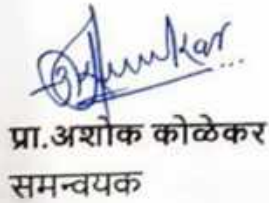 प्रा.अशोक कोळेकर
समन्वयक